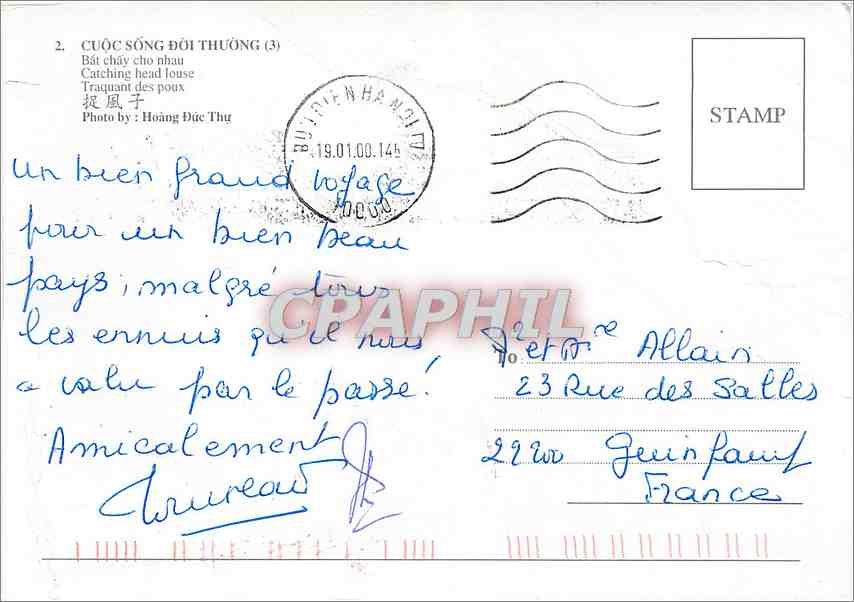 2. CUỘC SỐNG ĐỜI THƯỜNG (3)
Bắt chấy cho nhau
Catching head louse
Traquant des poux
捉風子
Photo by : Hoàng Đức Thự
BUU DIEN HA NOI
19.01.00.14h
10000
STAMP
un bien grand voyage
pour un bien beau
pays, malgré tous
les ennuis qu'il nous
a valu par le passé!
Amicalement
CPAPHIL
To Mr et Me Allain
23 Rue des Salles
22200 Guingamp
France